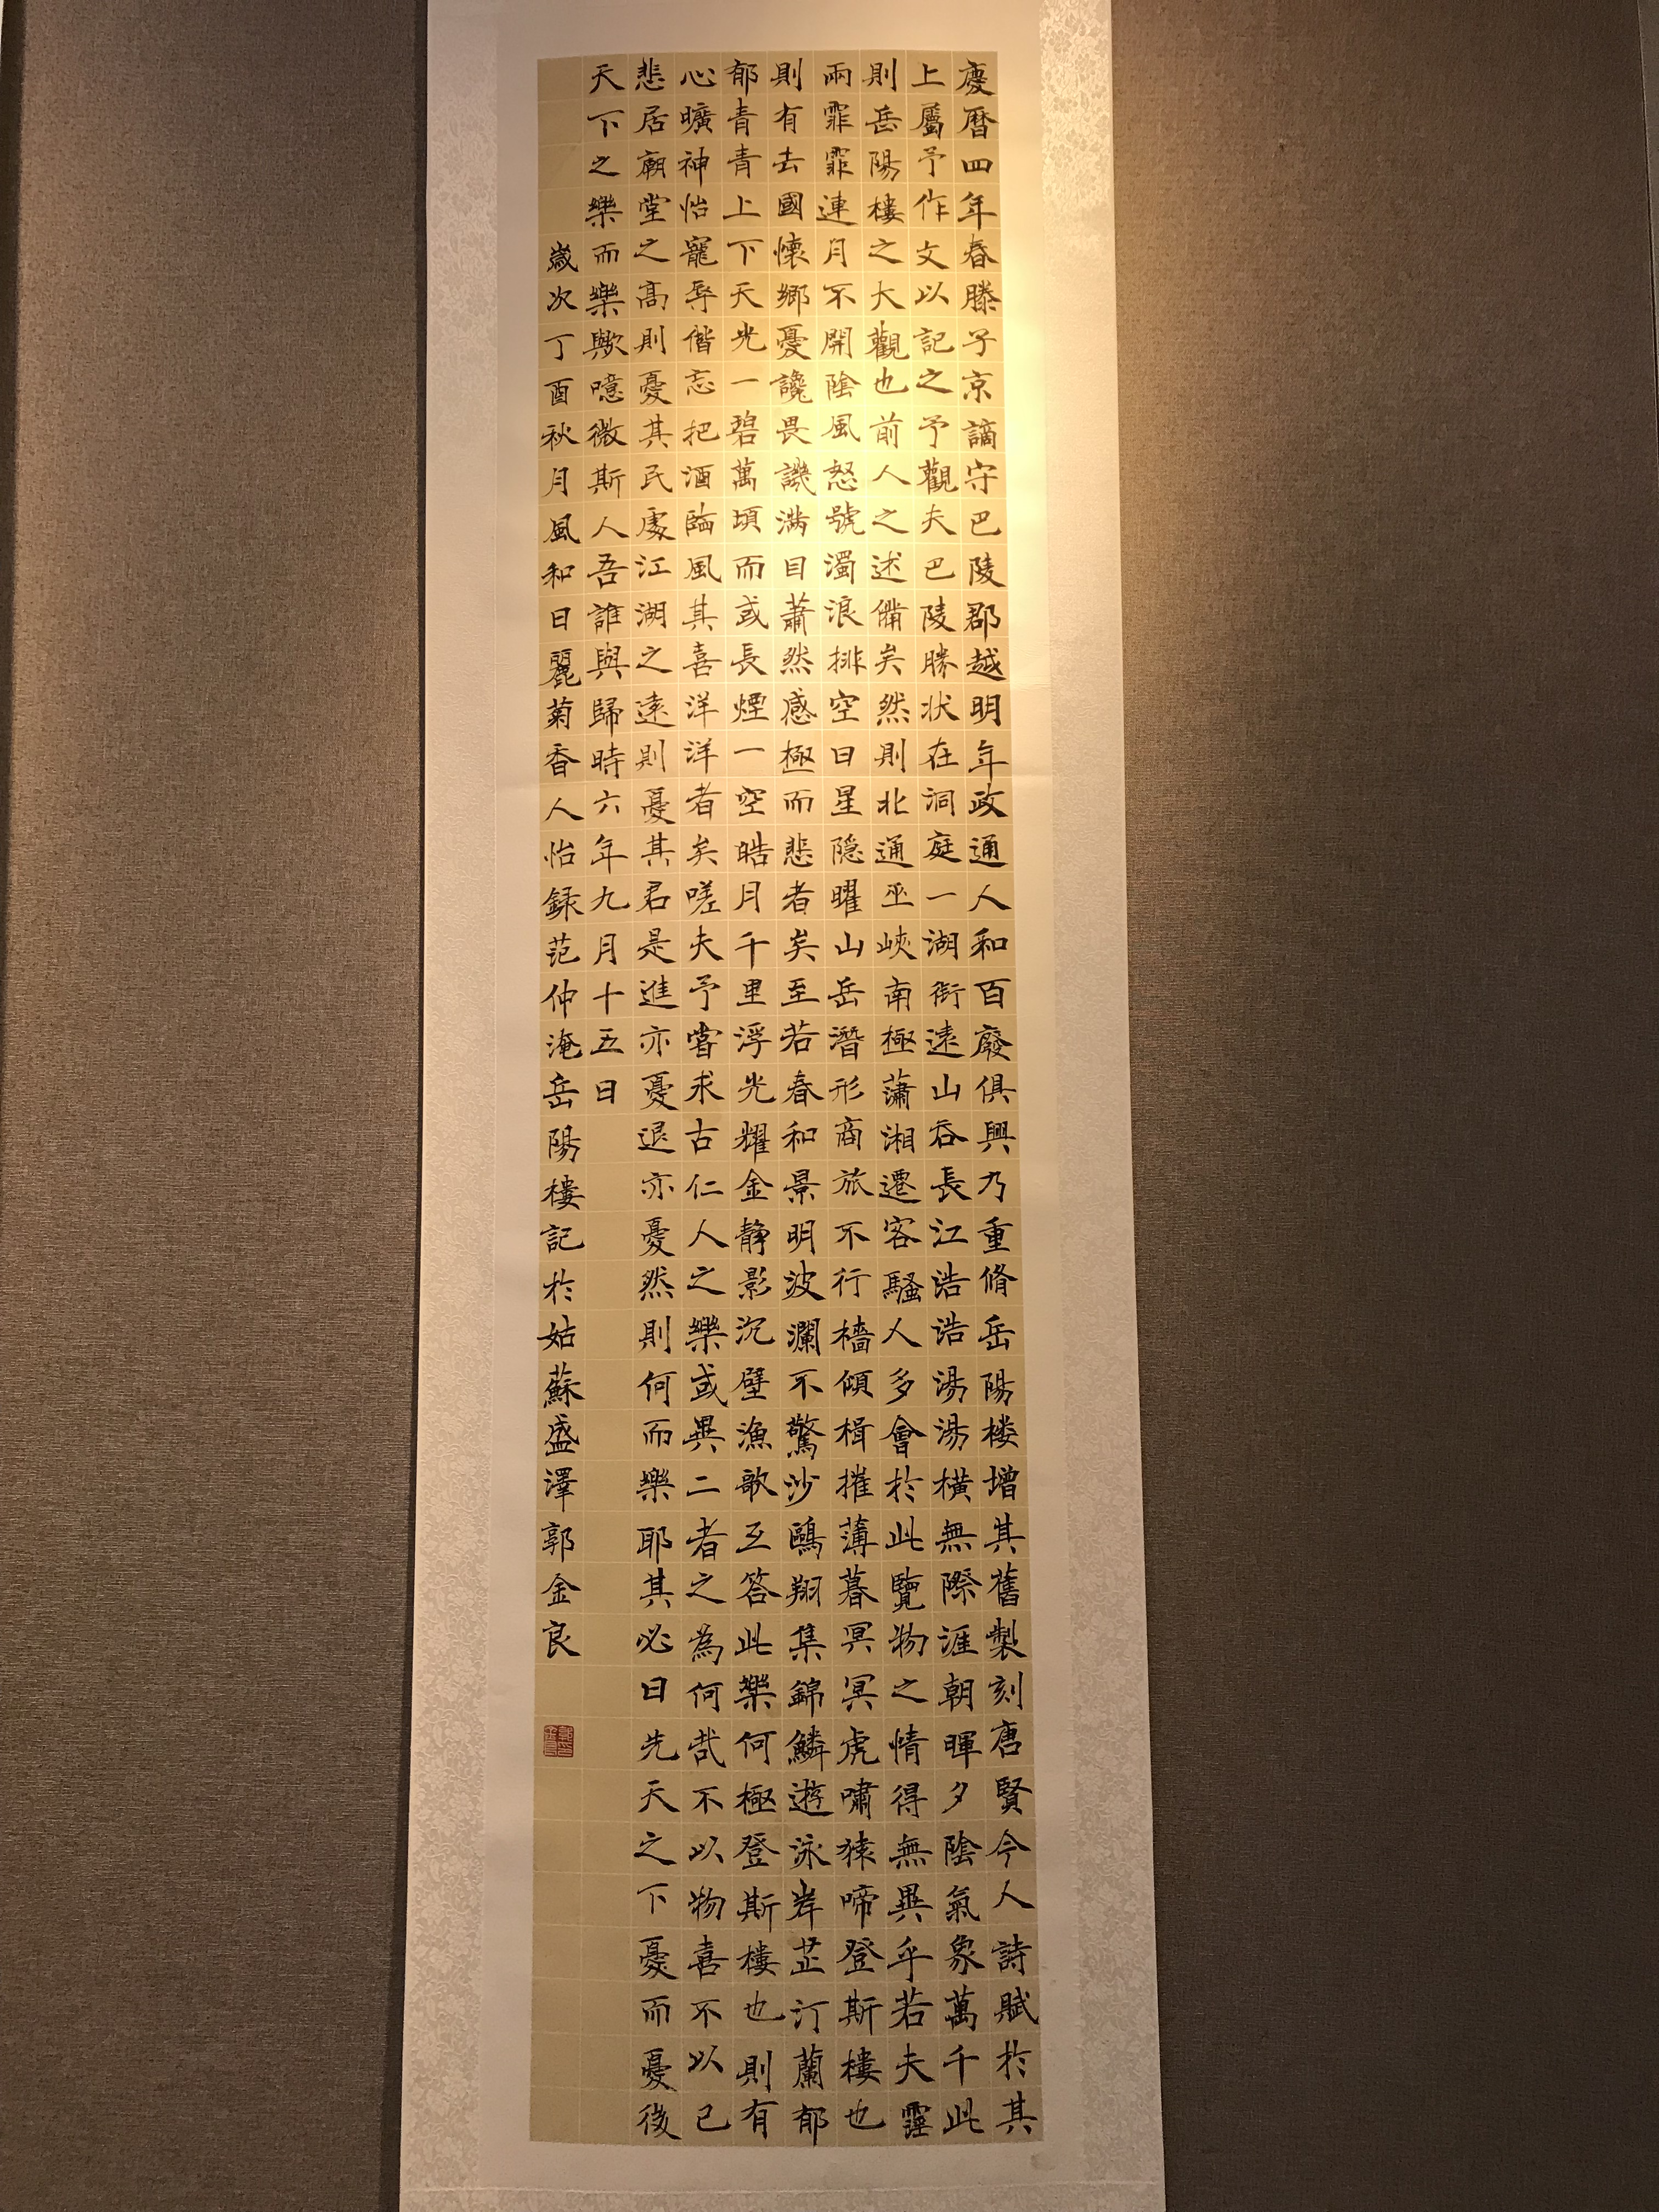 慶曆四年春滕子京謫守巴陵郡越明年政通人和百廢俱興乃重脩岳陽楼增其舊製刻唐賢今人詩賦於其
上屬予作文以記之予觀夫巴陵勝状在洞庭一湖銜遠山吞長江浩浩湯湯橫無際涯朝暉夕陰氣象萬千此
則岳陽樓之大觀也前人之述備矣然則北通巫峽南極瀟湘遷客騷人多會於此覽物之情得無異乎若夫霪
雨霏霏連月不開陰風怒號濁浪排空日星隱曜山岳潛形商旅不行檣傾楫摧薄暮冥冥虎嘯猿啼登斯樓也
則有去國懷鄉憂讒畏譏滿目蕭然感極而悲者矣至若春和景明波瀾不驚沙鷗翔集錦鱗遊泳岸芷汀蘭郁
郁青青上下天光一碧萬頃而或長煙一空皓月千里浮光耀金静影沉壁漁歌互答此樂何極登斯樓也則有
心曠神怡寵辱偕忘把酒臨風其喜洋洋者矣嗟夫予嘗求古仁人之樂或異二者之為何哉不以物喜不以己
悲居廟堂之高則憂其民處江湖之遠則憂其君是進亦憂退亦憂然則何而樂耶其必曰先天之下憂而憂後
天下之樂而樂歟噫微斯人吾誰與歸時六年九月十五日
歲次丁酉秋月風和日麗菊香人怡録范仲淹岳陽樓記於姑蘇盛澤郭金良